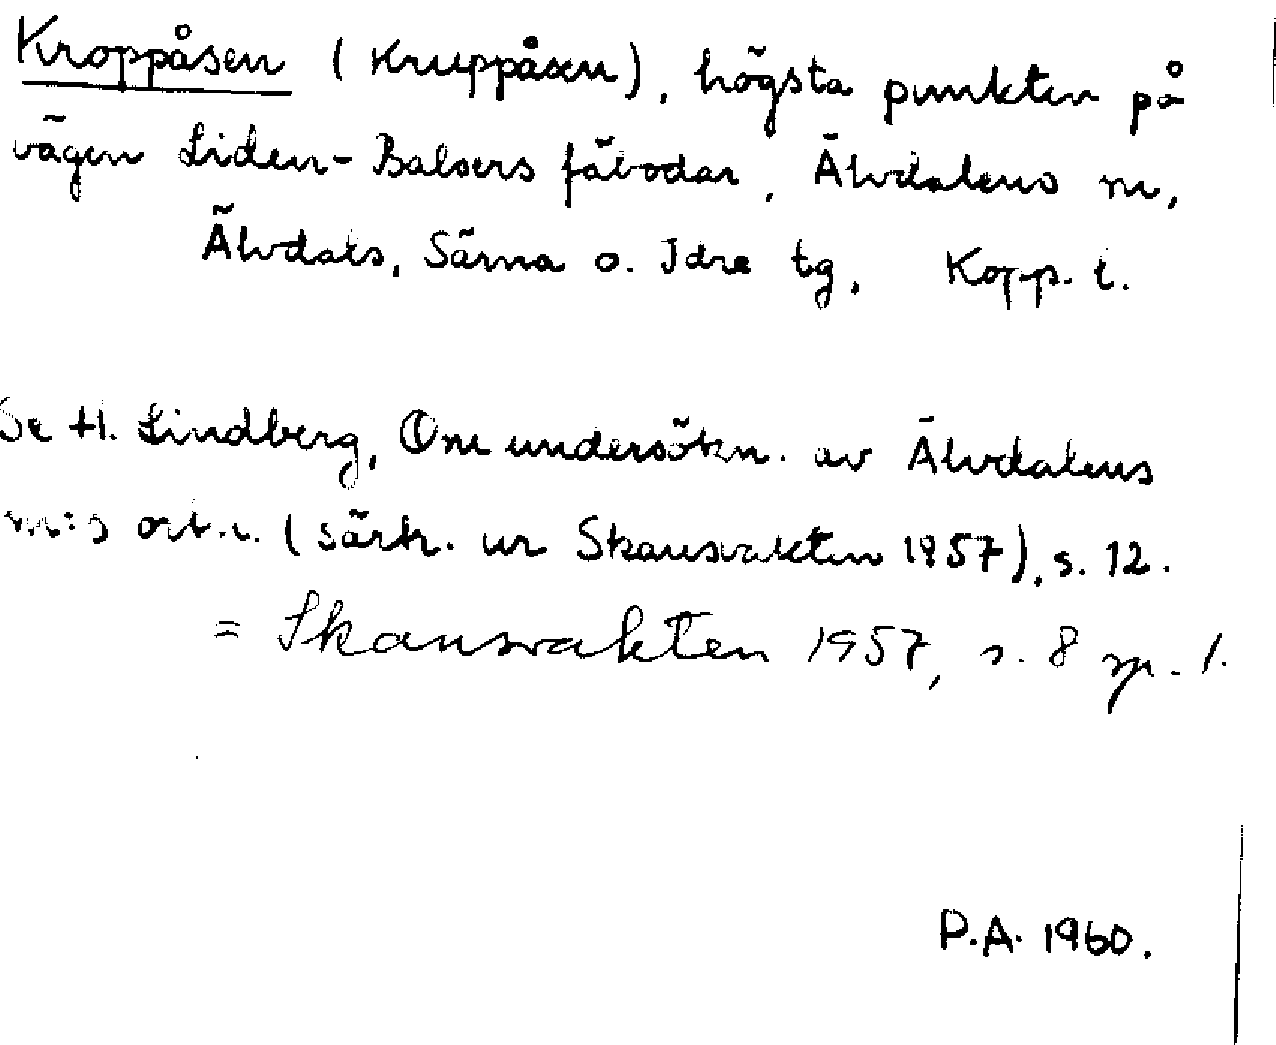 Kroppåsen (Kruppåsen), högsta punkten på
vägen Liden - Balsers fäbodar, Älvdalens sn,
Älvdals, Särna o. Idre tg, Kopp. l.
Se H. Lindberg, Om undersökn. av Älvdalens
sn:s ort.n. (särtr. ur Skansvakten 1957), s. 12.
= Skansvakten 1957, s. 8 sp. 1.
P.A. 1960.